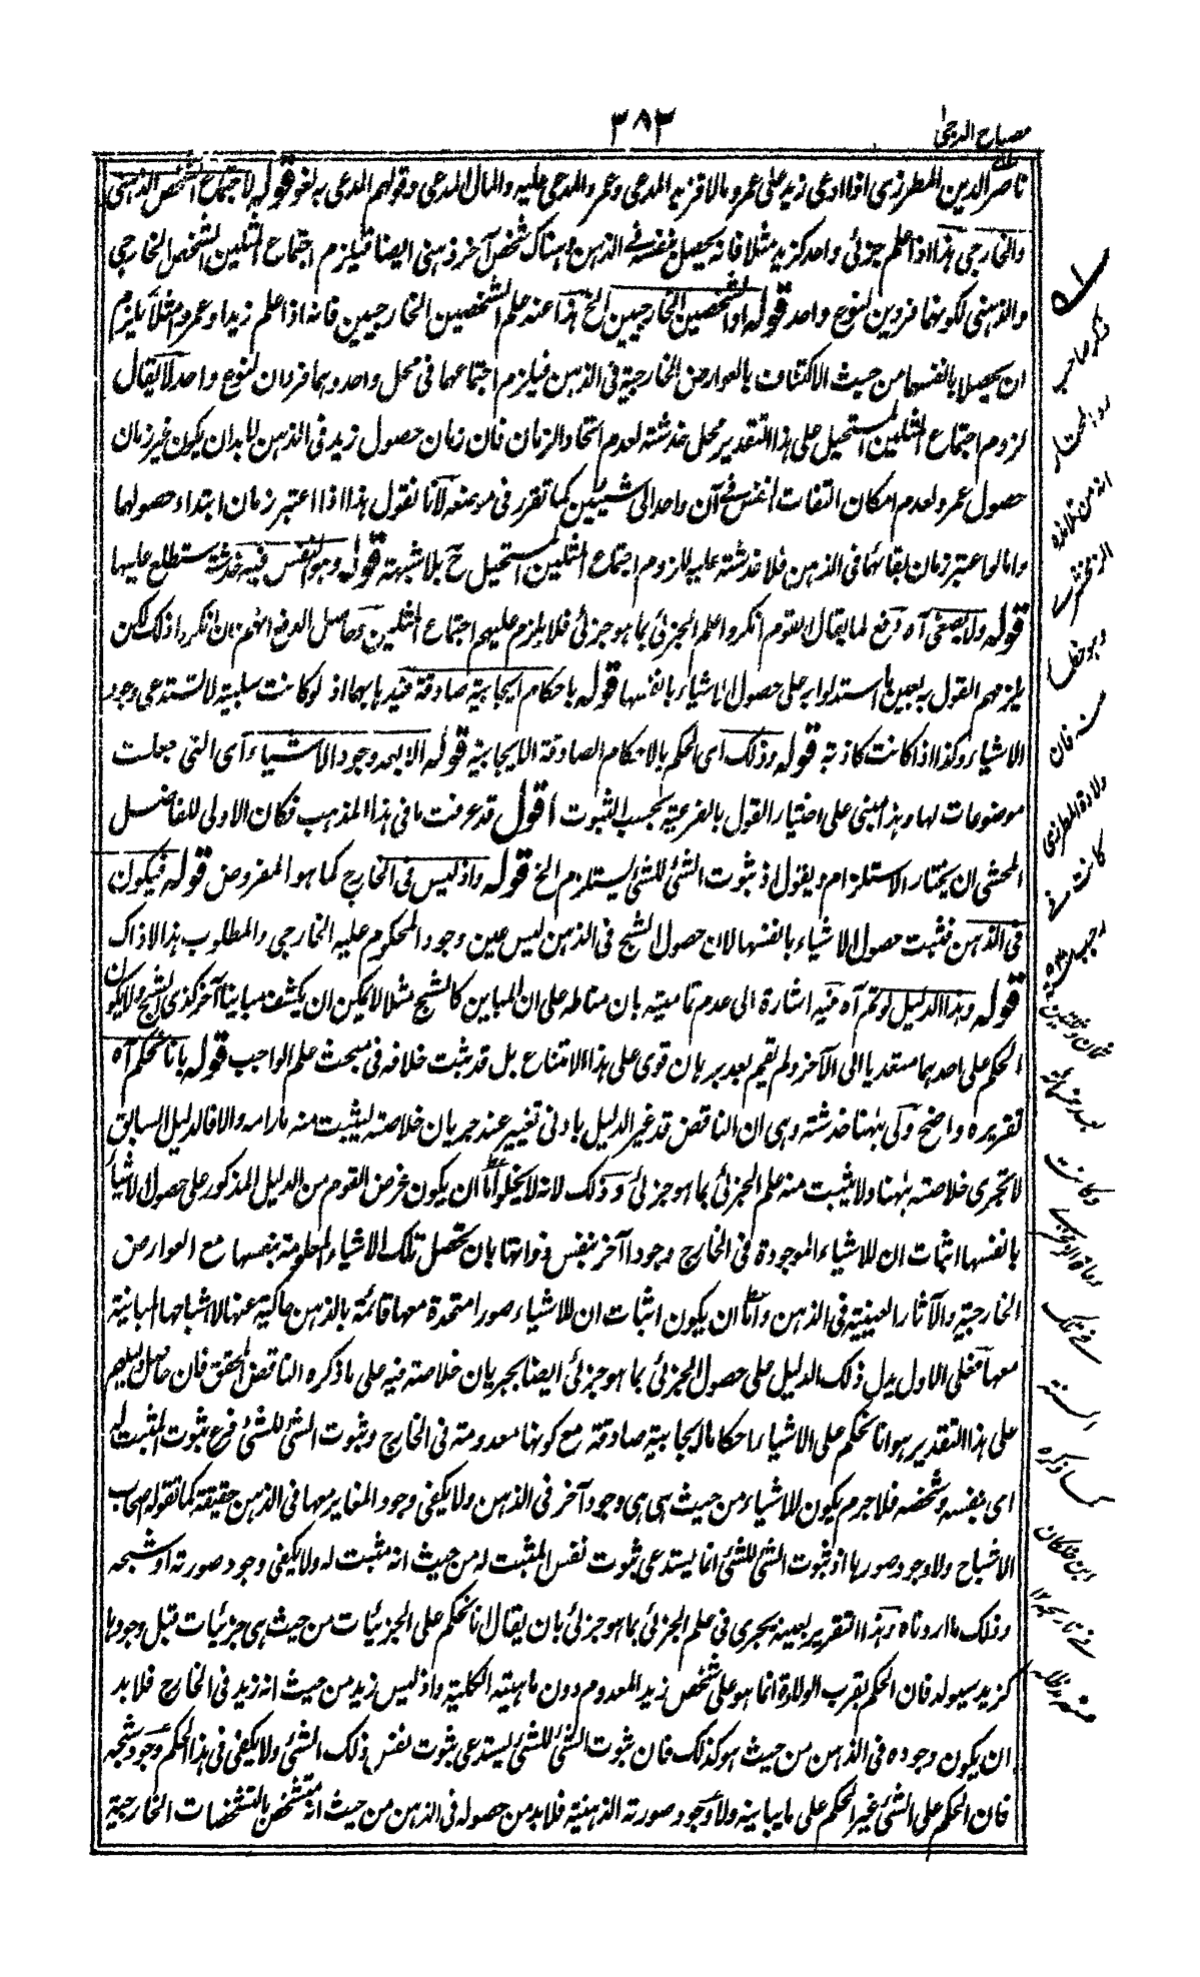 مصباح الدجى
٣٨٣
ناصر الدين المطرزى اذا ادعى زيد على عمرو مالا فزيد المدعى وعمرو المدعى عليه والمال المدعى وقولهم المدعى به لغو قوله لاجتماع الشخص الذهنى
والخارجى هذا اذا علم جزئى واحد كزيد مثلا فانه يحصل بنفسه فى الذهن وهناك شخص آخر ذهنى ايضا فيلزم اجتماع المثلين الشخص الخارجى
والذهنى لكونهما فردين لنوع واحد قوله او الشخصين الخارجيين الخ هذا عند علم الشخصين الخارجيين فانه اذا علم زيدا وعمروا مثلا يلزم
ان يحصلا بانفسهما من حيث الاكتناف بالعوارض الخارجية فى الذهن فيلزم اجتماعهما فى محل واحد وهما فردان لنوع واحد لا يقال
لزوم اجتماع المثلين المستحيل على هذا التقدير محل خدشة لعدم اتحاد الزمان فان زمان حصول زيد فى الذهن لا بد ان يكون غير زمان
حصول عمرو لعدم امكان التفات النفس فى آن واحد الى شيئين كما تقرر فى موضعه لانا نقول هذا اذا اعتبر زمان ابتداء حصولها
واما لو اعتبر زمان بقائهما فى الذهن فلا خدشة عليه للزوم اجتماع المثلين المستحيل ح بلا شبهة قوله وهو النفس فيه خدشة ستطلع عليها
قوله ولا يصغى آه دفع لما يقال القوم انكروا علم الجزئى بما هو جزئى فلا يلزم عليهم اجتماع المثلين وحاصل الدفع انهم وان انكروا ذلك لكن
يلزمهم القول به بعين ما استدلوا به على حصول الاشياء بانفسها قوله باحكام ايجابية صادقة قيد بهما اذ لو كانت سلبية لا تستدعى وجود
الاشياء وكذا اذا كانت كاذبة قوله وذلك اى الحكم بالاحكام الصادقة الايجابية قوله الا بعد وجود الاشياء اى التى جعلت
موضوعات لها وهذا مبنى على اختيار القول بالفرعية بحسب الثبوت اقول قد عرفت ما فى هذا المذهب فكان الاولى للفاضل
المحشى ان يختار الاستلزام ويقول اذ ثبوت الشئ للشئ يستلزم الخ قوله واذ ليس فى الخارج كما هو المفروض قوله فيكون
فى الذهن فثبت حصول الاشياء بانفسها لان حصول الشبح فى الذهن ليس عين وجود المحكوم عليه الخارجى والمطلوب هذا لا ذاك
قوله وهذا الدليل لو تم آه فيه اشارة الى عدم تماميته بان مناطه على ان المباين كالشبح مثلا لا يمكن ان يكشف مباينا آخر كذى الشبح ولا يكون
الحكم على احدهما متعديا الى الآخر ولم يقم بعد برهان قوى على هذا الامتناع بل قد ثبت خلافه فى مبحث علم الواجب قوله بانا نحكم آه
تقريره واضح ولى ههنا خدشة وهى ان الناقض قد غير الدليل بادنى تغيير عند جريان خلاصته ليثبت منه مارامه والا فالدليل السابق
لا تجرى خلاصته ههنا ولا يثبت منه علم الجزئى بما هو جزئى وذلك لانه لا يخلو اما ان يكون غرض القوم من الدليل المذكور على حصول الاشياء
بانفسها اثبات ان للاشياء الموجودة فى الخارج وجودا آخر بنفس ذواتها بان تحصل تلك الاشياء المعلومة بنفسها مع العوارض
الخارجية والآثار العينية فى الذهن واما ان يكون اثبات ان للاشياء صورا متحدة معها قائمة بالذهن حاكية عنها لا اشباحها المباينة
معها فعلى الاول يدل ذلك الدليل على حصول الجزئى بما هو جزئى ايضا بجريان خلاصته فيه على ما ذكره الناقض المحقق فان حاصل دليلهم
على هذا التقدير هو انا نحكم على الاشياء احكاما ايجابية صادقة مع كونها معدومة فى الخارج وثبوت الشئ للشئ فرع ثبوت المثبت له
اى بنفسه وشخصه فلا جرم يكون للاشياء من حيث هى هى وجود آخر فى الذهن ولا يكفى وجود المغاير معها فى الذهن حقيقة كما تقوله اصحاب
الاشباح ولا وجود صورها اذ ثبوت الشئ للشئ انما يستدعى ثبوت نفس المثبت له من حيث انه مثبت له ولا يكفى وجود صورته او شبحه
وذلك ما اردناه وهذا التقرير بعينه يجرى فى علم الجزئى بما هو جزئى بان يقال انا نحكم على الجزئيات من حيث هى جزئيات قبل وجودها
كزيد سيولد فان الحكم بقرب الولادة انما هو على شخص زيد المعدوم دون ماهيته الكلية واذ ليس زيد من حيث انه زيد فى الخارج فلا بد
ان يكون وجوده فى الذهن من حيث هو كذلك فان ثبوت الشئ للشئ يستدعى ثبوت نفس ذلك الشئ ولا يكفى فى هذا الحكم وجود شبحه
فان الحكم على الشئ غير الحكم على ما يباينه ولا وجود صورته الذهنية فلا بد من حصوله فى الذهن من حيث انه متشخص بالتشخصات الخارجية
ذكر صاحب
رد المحتار
انه من تلامذه
الزمخشرى
وهو خطأ
منه فان
ولادة المطرزى
كانت فى
رجب
ثمان وثلثين
بعد خمسمائة
وكانت
وفاة الزمخشرى
فى تلك
السنة
كما ذكره
ابن خلكان
فى تاريخه ١٢
منه مد ظله